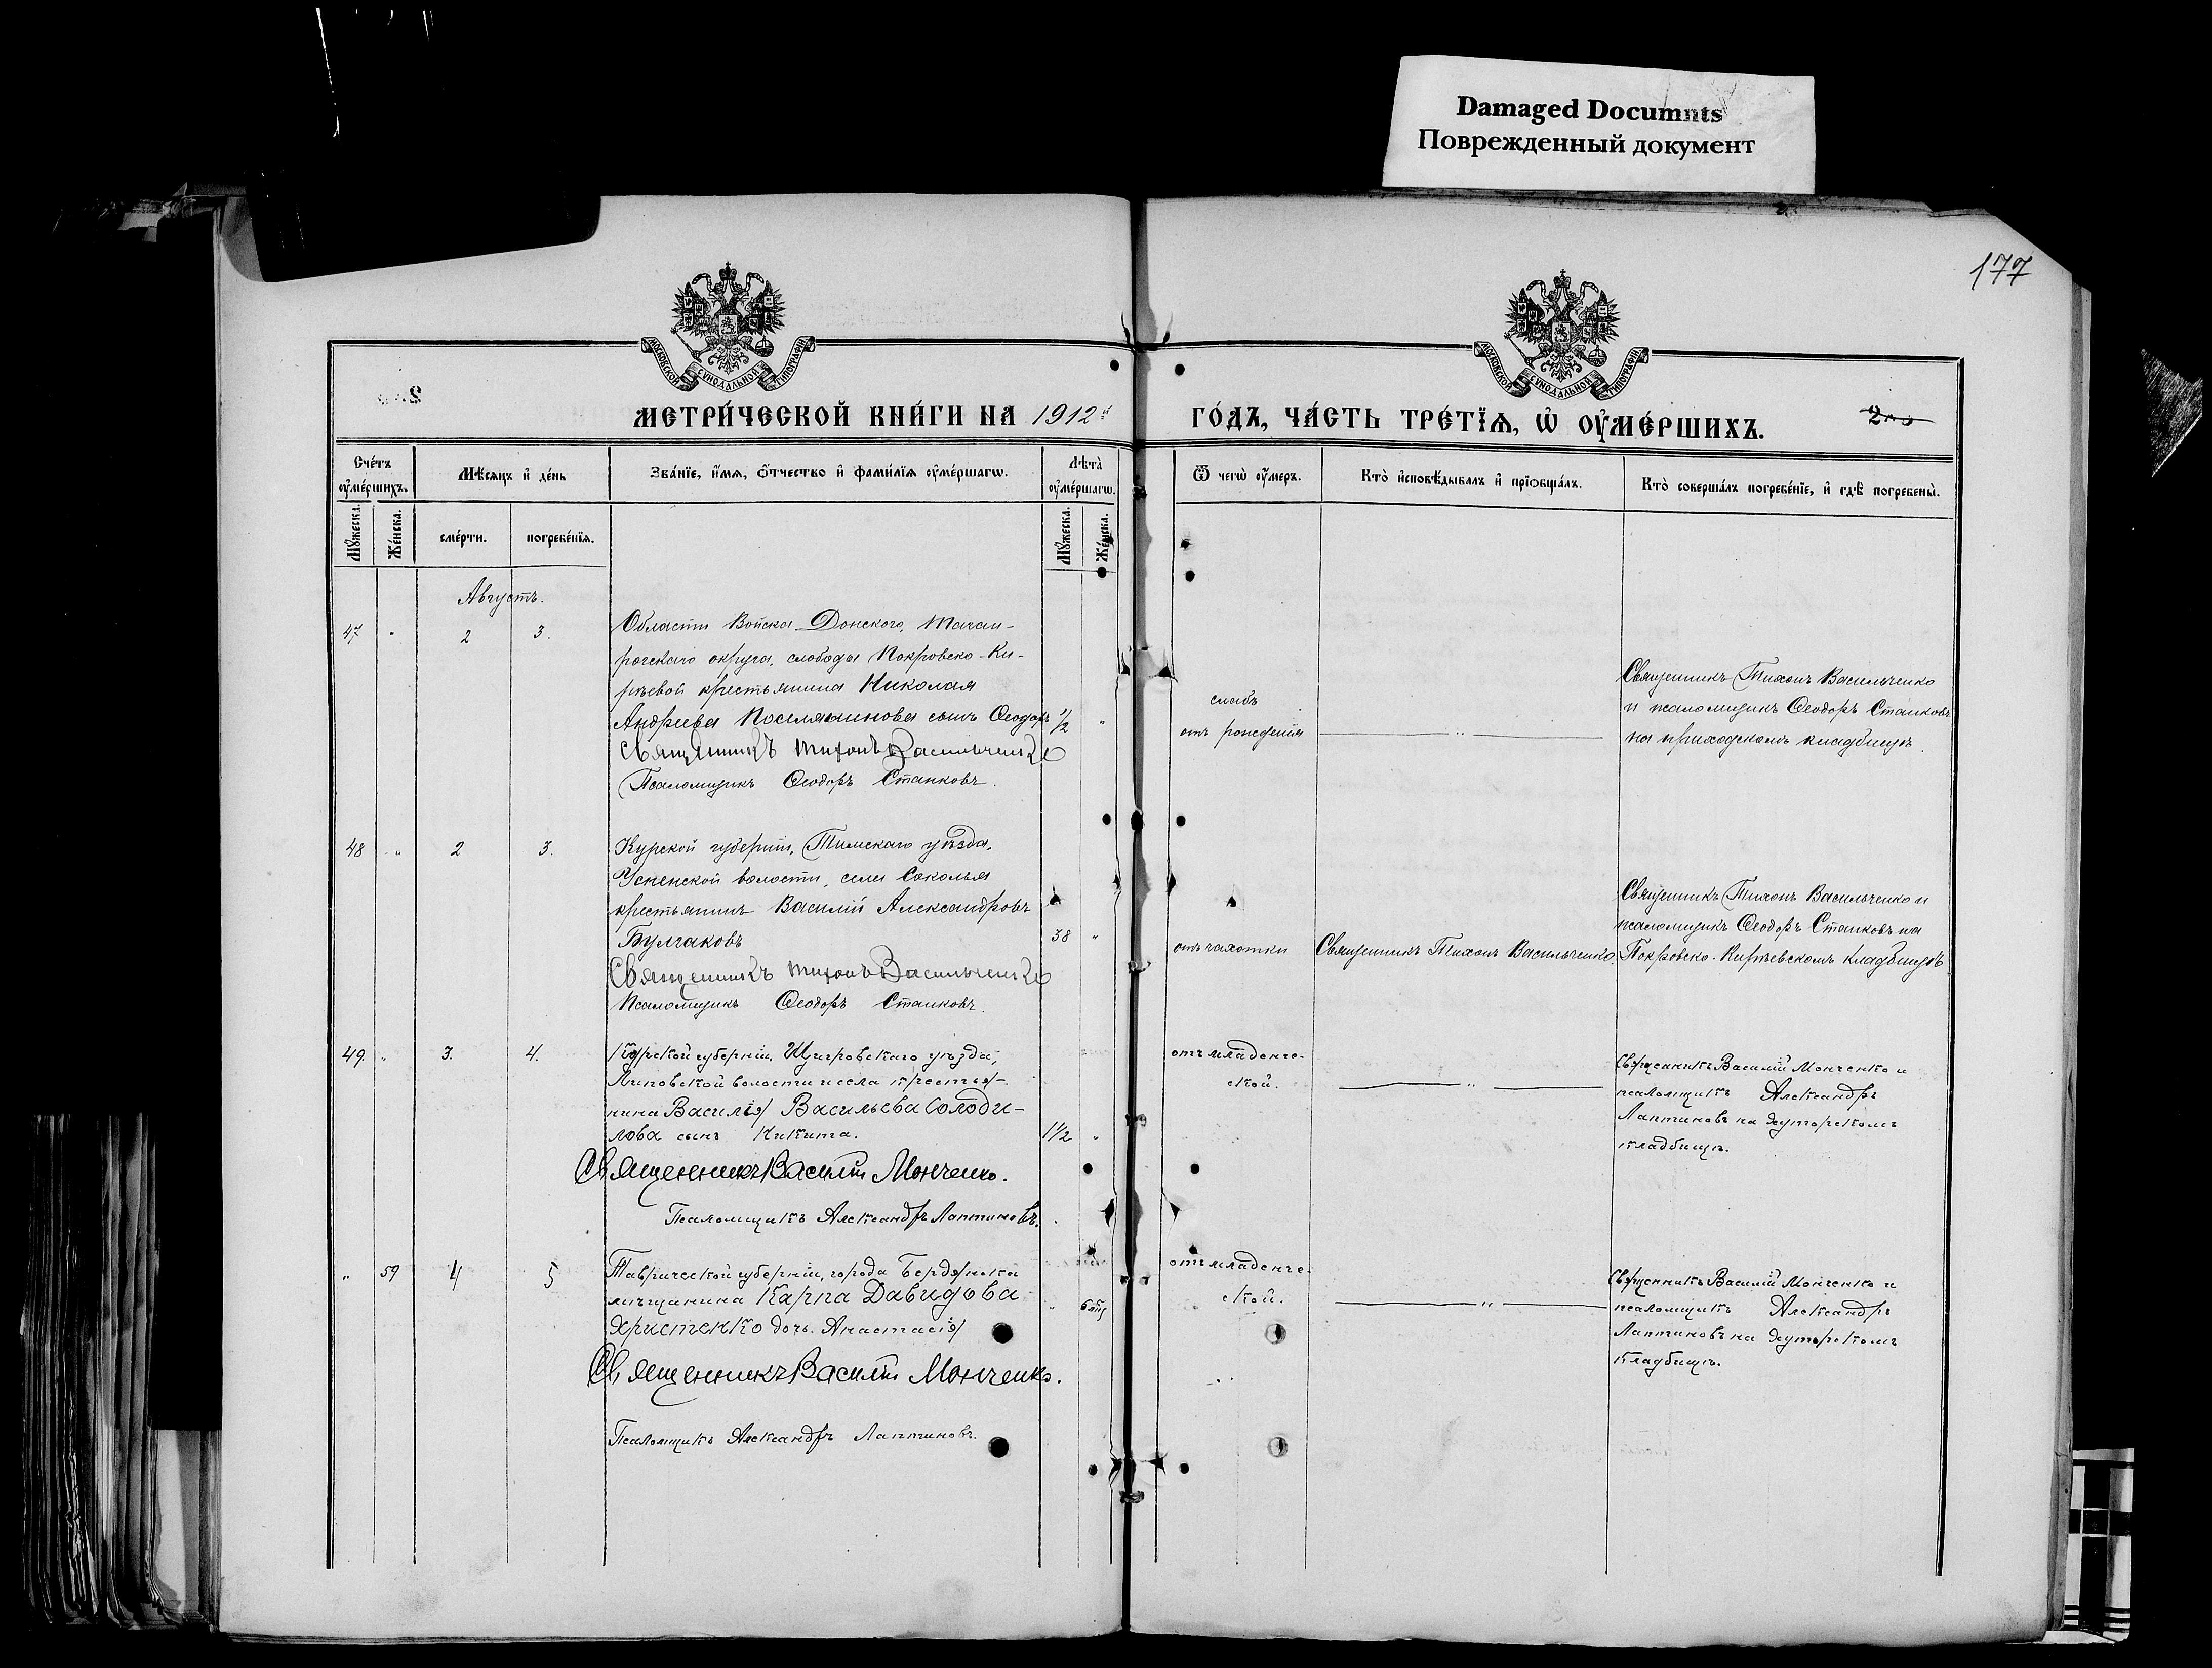 Damaged Documnts
Поврежденный документ
177
МОСКОВСКОЙ СѴНОДАЛЬНОЙ ТИПОГРАФІИ
МОСКОВСКОЙ СѴНОДАЛЬНОЙ ТИПОГРАФІИ
МЕТРИ́ЧЕСКОЙ КНИ́ГИ НА 1912й
ГО́ДЪ, ЧА́СТЬ ТРЕ́ТЇѦ, Ѡ҆ ОУ҆МЕ́РШИХЪ.
Сче́тъ оу҆ме́ршихъ.
Мѣ́сяцъ и҆ де́нь
Зва́нїе, и҆́мя, ѻ҆́тчество и҆ фами́лїя оу҆ме́ршагѡ.
Лѣ́та оу҆ме́ршагѡ.
Ѿ чегѡ̀ оу҆́меръ.
Кто̀ и҆сповѣ́дывалъ и҆ прїѡбща́лъ.
Кто̀ соверша́лъ погребе́нїе, и҆ гдѣ̀ погребены̀.
Мꙋ́жеска.
Же́нска.
сме́рти.
погребе́нїя.
Мꙋ́жеска.
Же́нска.
Августъ.
47 " 2 3.
Области Войска Донского, Таган-
рогскаго округа, слободы Покровско-Ки-
рѣевой крестьянина Николая
Андреева Поселянинова сынъ Ѳеодоръ 1/2 "
Священникъ Тихонъ Васильченко
Псаломщикъ Ѳеодоръ Станковъ.
слабъ
отъ рожденія
— " —
Священникъ Тихонъ Васильченко
и псаломщикъ Ѳеодоръ Станковъ
на приходскомъ кладбищѣ.
48 " 2 3.
Курской губерніи, Тимскаго уѣзда,
Успенской волости, села Соколья
крестьянинъ Василій Александровъ
Булгаковъ 38 "
Священникъ Тихонъ Васильченко
Псаломщикъ Ѳеодоръ Станковъ.
отъ чахотки
Священникъ Тихонъ Васильченко.
Священникъ Тихонъ Васильченко и
псаломщикъ Ѳеодоръ Станковъ на
Покровско-Кирѣевскомъ кладбищѣ
49. " 3. 4.
Курской губерніи, Щигровскаго уѣзда,
Липовской волости и села крестья-
нина Василія Васильева Солоди-
лова сынъ Никита. 1 1/2 "
Священникъ Василій Монченко.
Псаломщикъ Александръ Лаптиновъ.
отъ младенче-
ской.
— " —
Священникъ Василій Монченко и
псаломщикъ Александръ
Лаптиновъ на хуторскомъ
кладбищѣ.
" 59 4 5
Таврической губерніи, города Бердянска
мѣщанина Карпа Давидова
Христенко дочь Анастасія " 6
Священникъ Василій Монченко.
Псаломщикъ Александръ Лаптиновъ.
отъ младенче-
ской.
— " —
Священникъ Василій Монченко и
псаломщикъ Александръ
Лаптиновъ на хуторскомъ
кладбищѣ.